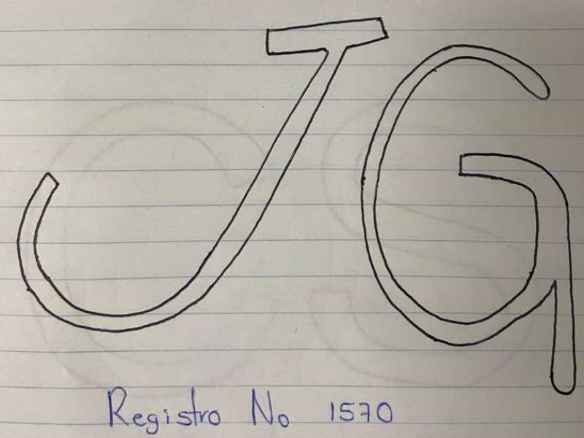 JG
Registro No 1570